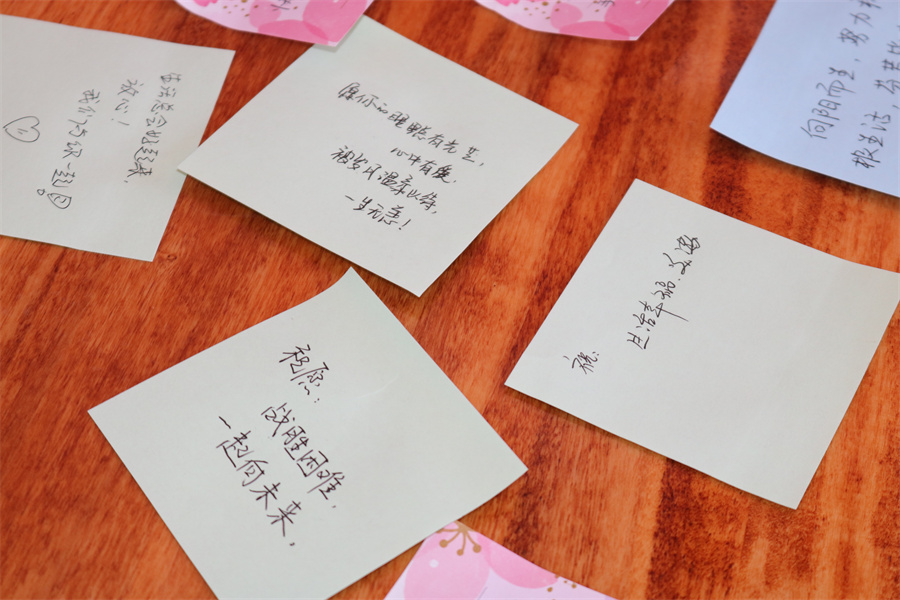 生活总会好起来,
放心!
我们与你一起
愿你的眼睛有光芒,
心中有暖,
被岁月温柔以待,
一生无恙!
向阳而生,努力
根生活,
祝:
生活幸福.美满
祝愿:
战胜困难,
一起向未来,